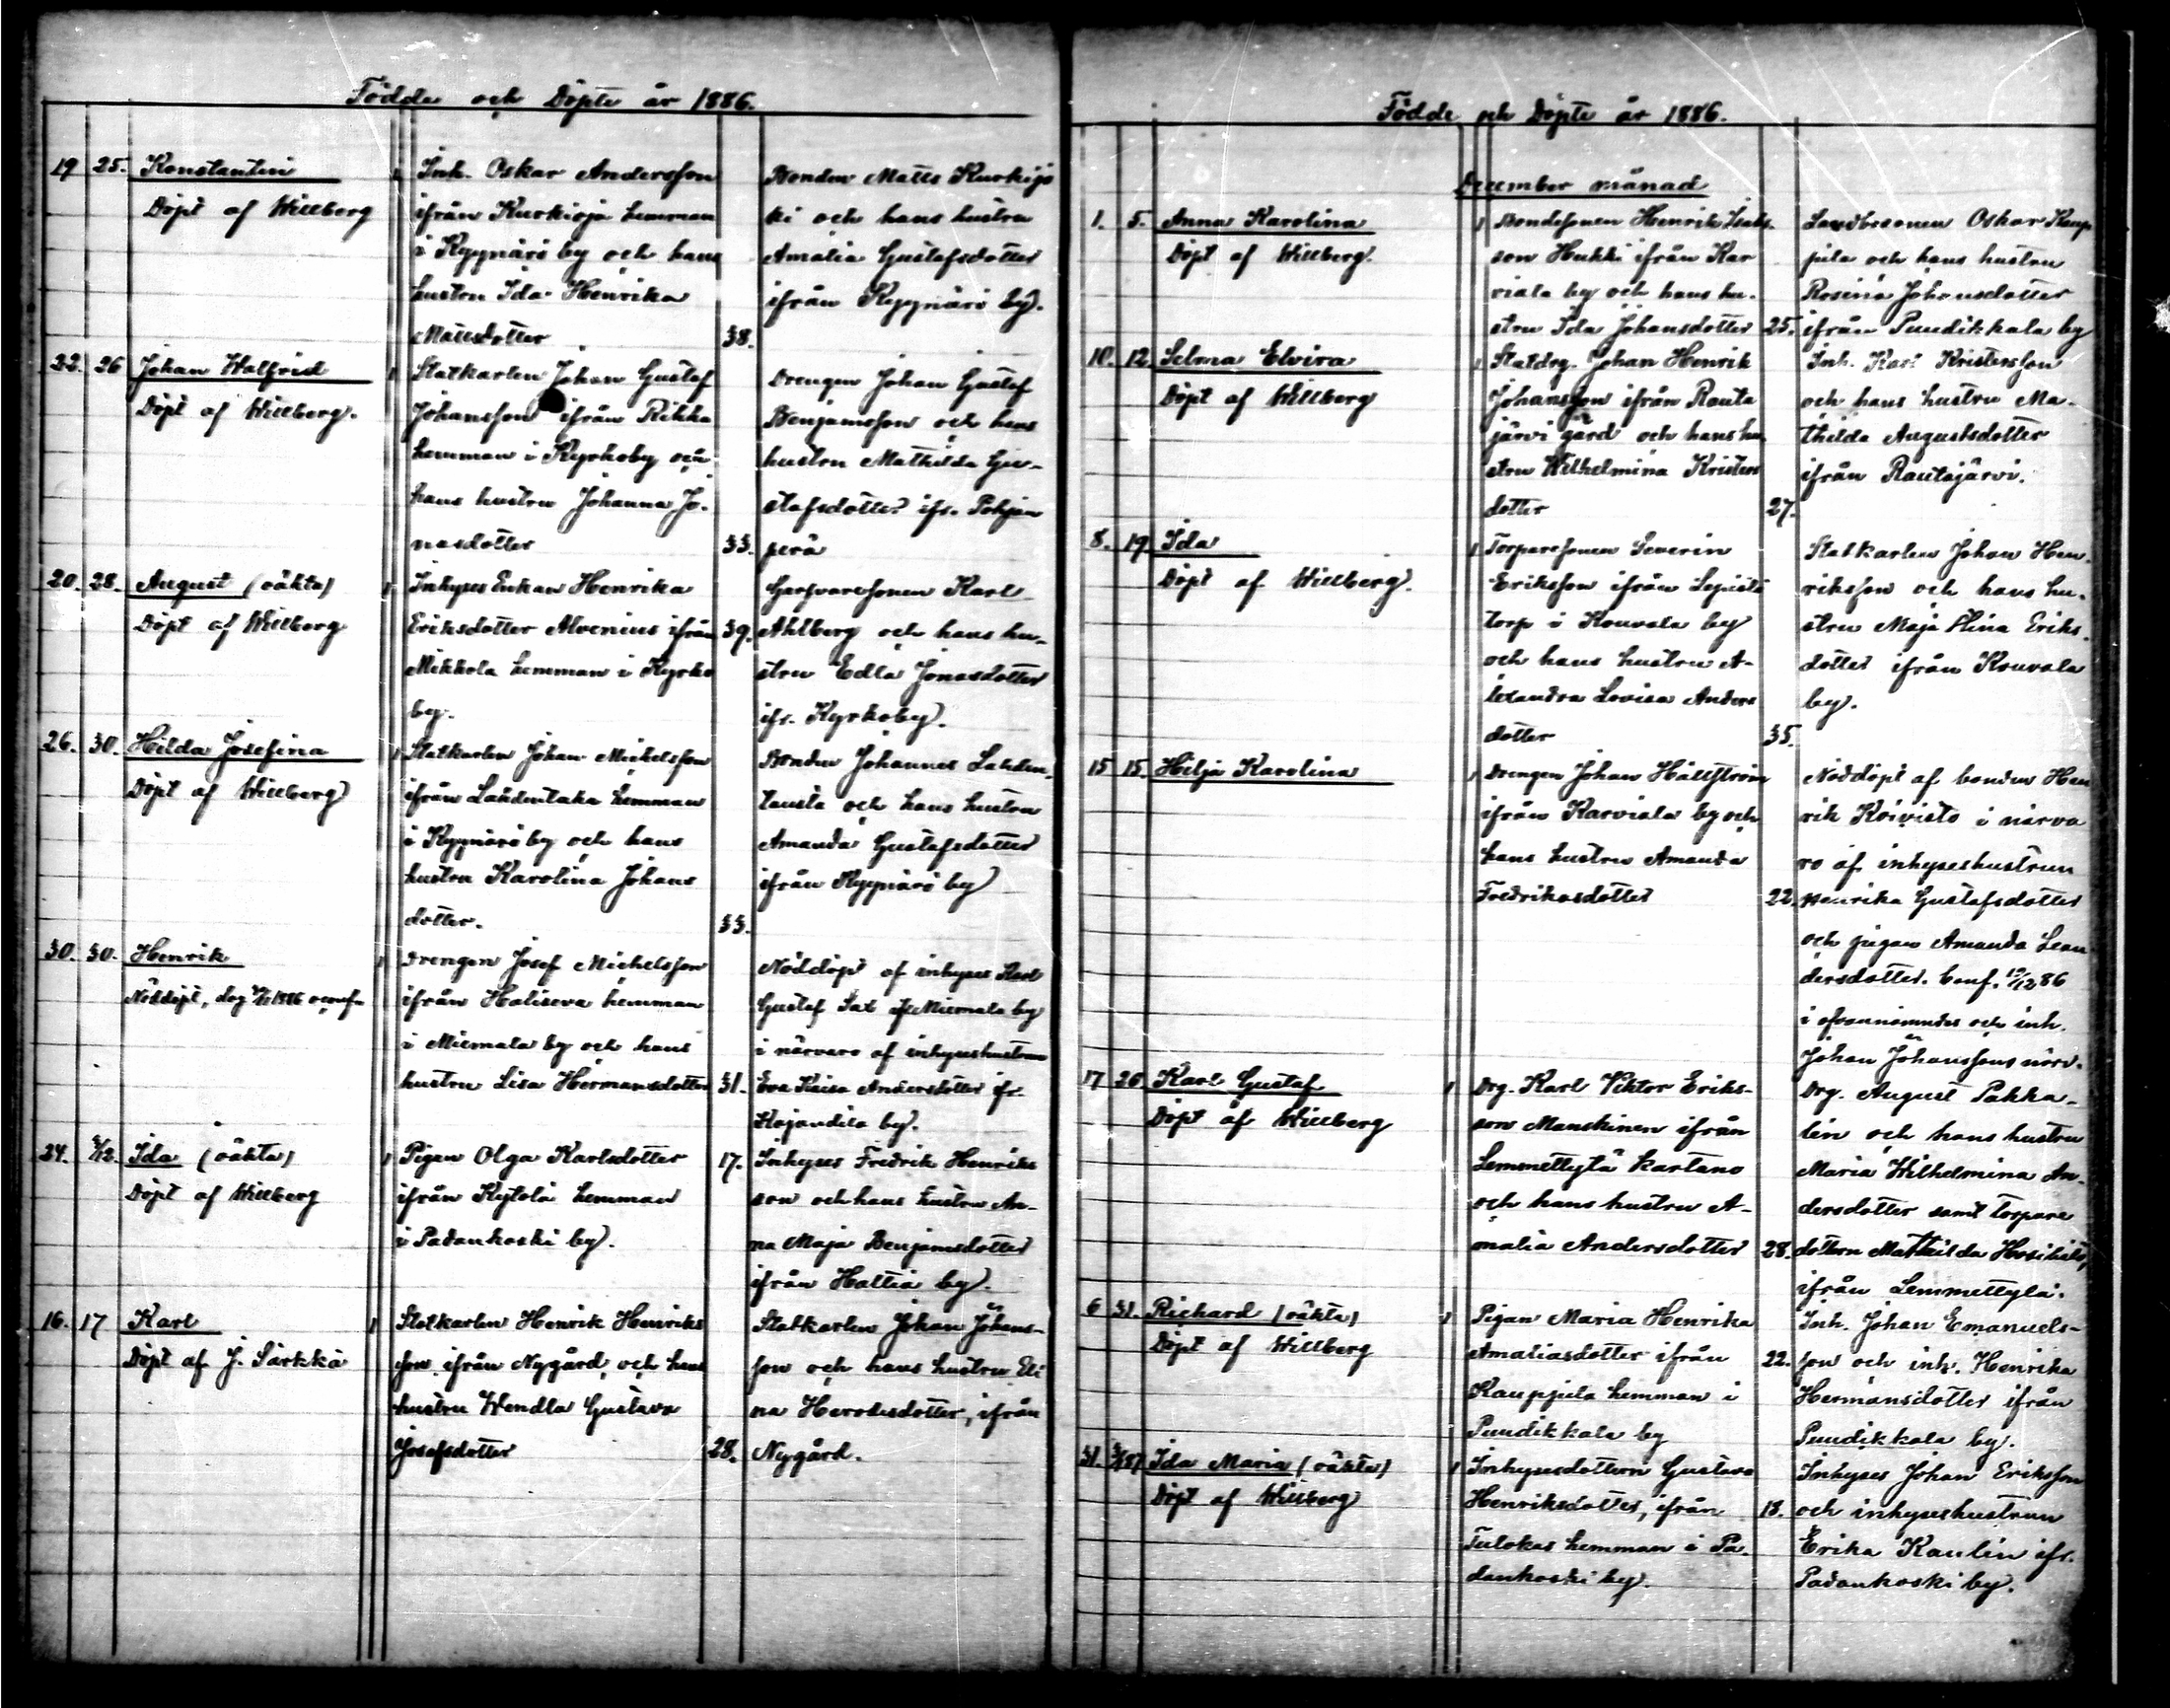 Födde och Döpte år 1886.
19 25. Konstantin
Döpt af Willberg
1 Inh. Oskar Andersson
ifrån Kurkioja hemman
i Kyynärö by och hans
hustru Ida Henrika
Mattsdotter 38.
Bonden Matts Kurkijo
ki och hans hustru
Amalia Gustafsdotter
ifrån Kyynärö by.
22. 26 Johan Walfrid
Döpt af Willberg.
1 Statkarlen Johan Gustaf
Johansson ifrån Rikka
hemman i Kyrkoby och
hans hustru Johanna Jo-
nasdotter 33.
Drengen Johan Gustaf
Benjamsson och hans
hustru Mathilda Gu-
stafsdotter ifr. Pohjan
perä
20. 28. August (oäkta)
Döpt af Willberg
1 Inhyses Enkan Henrika
Eriksdotter Alvenius ifrån 39.
Mikkola hemman i Kyrko
by.
Garfvaresonen Karl
Ahlberg och hans hu-
stru Edla Jonasdotter
ifr. Kyrkoby.
26. 30. Hilda Josefina
Döpt af Willberg
1 Statkarlen Johan Michelsson
ifrån Lahdentaka hemman
i Kyynärö by och hans
hustru Karolina Johans
dotter. 33.
Bonden Johannes Lahden
tausta och hans hustru
Amanda Gustafsdotter
ifrån Kyynärö by
30. 30. Henrik
Nöddöpt, dog 1886
1 Drengen Josef Michelsson
ifrån Haliseva hemman
i Miemala by och hans
hustru Lisa Hermansdotter 31.
Nöddöpt af inhyses Karl
Gustaf Sat af Miemala by
i närvaro af inhyseshustrun
Eva Kaisa Andersdotter ifr.
Kojandila by.
24. 2/12. Ida (oäkta)
Döpt af Willberg
1 Pigan Olga Karlsdotter 17.
ifrån Kytölä hemman
i Padankoski by.
Inhyses Fredrik Henriks
son och hans hustru An-
na Maja Benjamsdotter
ifrån Hattia by.
16. 17 Karl
Döpt af J. Särkkä
1 Statkarlen Henrik Henriks
son ifrån Nygård, och hans
hustru Wendla Gustava
Josefsdotter 28.
Statkarlen Johan Johans-
son och hans hustru Eli
na Herodesdotter, ifrån
Nygård.
Födde och Döpte år 1886.
December månad
1. 5. Anna Karolina
Döpt af Willberg.
1 Bondesonen Henrik Isaks-
son Hukki ifrån Kar
viala by och hans hu-
stru Ida Johansdotter 25.
Landbosonen Oskar Kaup
pila och hans hustru
Rosina Johansdotter
ifrån Puudikkala by
10. 12. Selma Elvira
Döpt af Willberg
1 Statdrg. Johan Henrik
Johansson ifrån Rauta
järvi gård och hans hu
stru Wilhelmina Kristers
dotter 27.
Inh. Karl Kristersson
och hans hustru Ma-
thilda Augustsdotter
ifrån Rautajärvi.
8. 19. Ida
Döpt af Willberg.
1 Torparesonen Severin
Eriksson ifrån Lepistö
torp i Kouvala by
och hans hustru A-
lexandra Lovisa Anders
dotter 35.
Statkarlen Johan Hen-
riksson och hans hu-
stru Maja Stina Eriks
dotter ifrån Kouvala
by.
15 15. Hilja Karolina
1 Drengen Johan Hällström
ifrån Karviala by och
hans hustru Amanda
Fredriksdotter 22.
Nöddöpt af bonden Hen
rik Koivisto i närva
ro af inhyseshustrun
Henrika Gustafsdotter
och pigan Amanda Lean
dersdotter. Conf. 19/12 86
i ofvannämndes och inh.
Johan Johanssons närv.
17 26 Karl Gustaf
Döpt af Willberg
1 Drg. Karl Viktor Eriks-
son Manskinen ifrån
Lemmettylä kartano
och hans hustru A-
malia Andersdotter 28.
Drg. August Pakka-
lén och hans hustru
Maria Wilhelmina An-
dersdotter samt torpare
dottern Mathilda
ifrån Lemmettylä.
6 31. Richard (oäkta)
Döpt af Willberg
1 Pigan Maria Henrika
Amaliasdotter ifrån 22.
Kauppila hemman i
Puudikkala by
Inh. Johan Emanuels-
son och inh. Henrika
Hermansdotter ifrån
Puudikkala by.
31. Ida Maria (oäkta)
Döpt af Willberg
1 Inhysesdottern Gustava
Henriksdotter, ifrån 18.
Tulokas hemman i Pa-
dankoski by.
Inhyses Johan Eriksson
och inhyseshustrun
Erika Kaulin ifr.
Padankoski by.